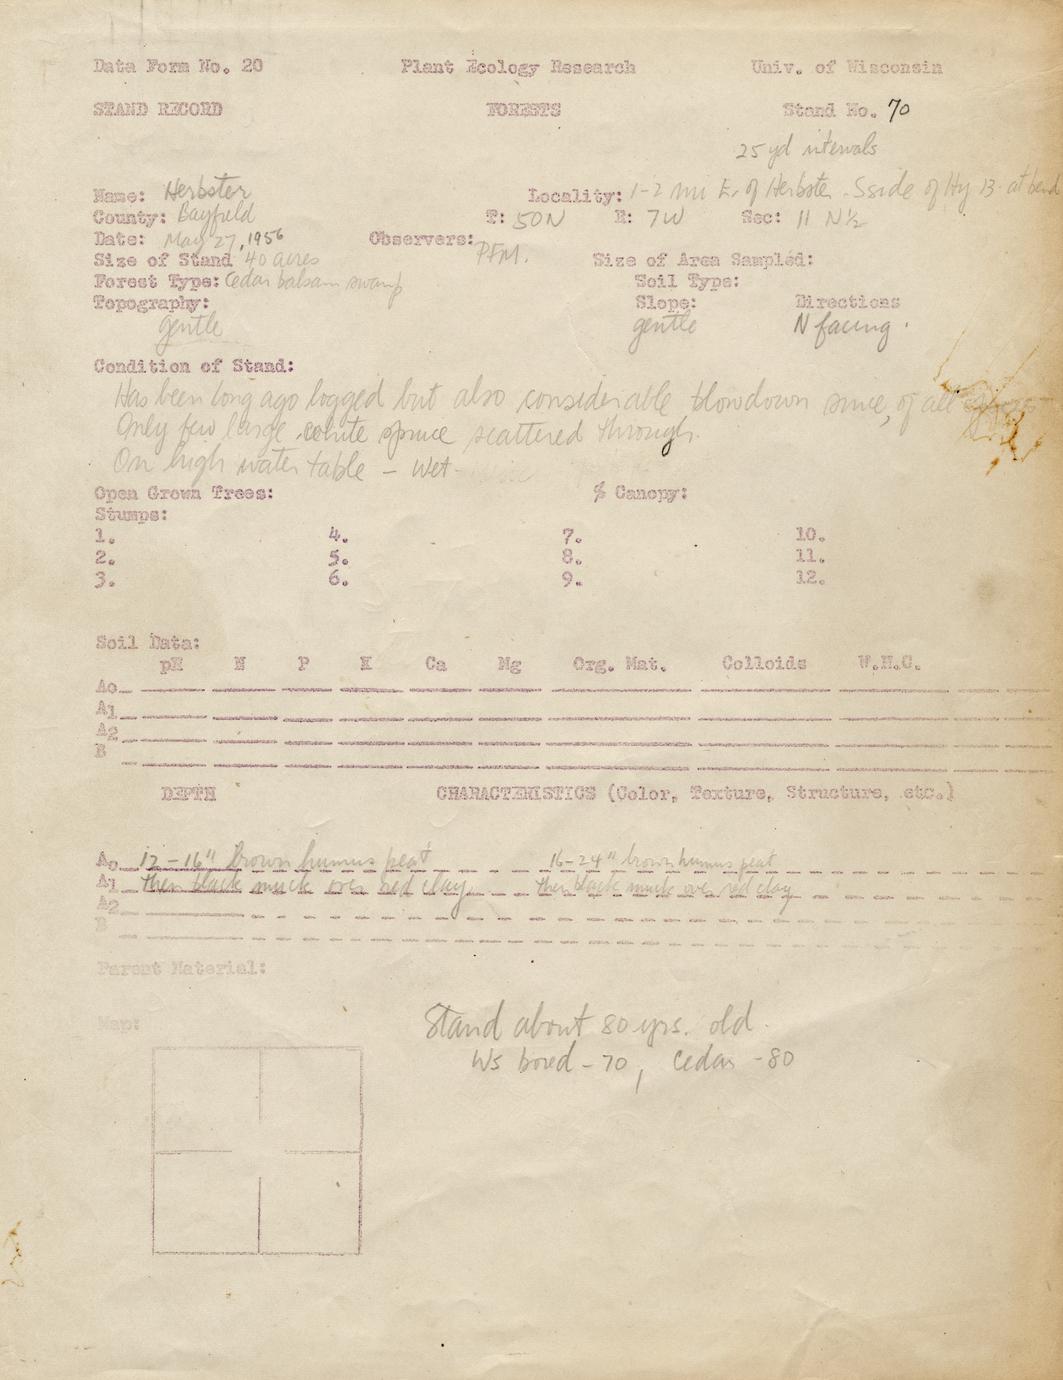 Data Form No. 20 Plant Ecology Research Univ. of Wisconsin
STAND RECORD FORESTS Stand No. 70
25 yd intervals
Name: Herbster Locality: 1-2 mi E. of Herbster. S side of Hy 13 at bend
County: Bayfield T: 50N R: 7W Sec: 11 N½
Date: May 27, 1956 Observers: PFM.
Size of Stand 40 acres Size of Area Sampled:
Forest Type: Cedar balsam swamp Soil Type:
Topography: Slope: Directions
gentle gentle N facing.
Condition of Stand:
Has been long ago logged but also considerable blowdown since, of all
Only few large white spruce scattered through.
On high water table - wet
Open Grown Trees: % Canopy:
Stumps:
1. 4. 7. 10.
2. 5. 8. 11.
3. 6. 9. 12.
Soil Data:
pH N P K Ca Mg Org. Mat. Colloids W.H.C.
Ao
A1
A2
B
DEPTH CHARACTERISTICS (Color, Texture, Structure, etc.)
Ao 12-16" brown humus peat 16-24" brown humus peat
A1 then black muck over red clay then black muck over red clay
A2
B
Parent Material:
Map:
Stand about 80 yrs. old.
Ws bored - 70, Cedar - 80